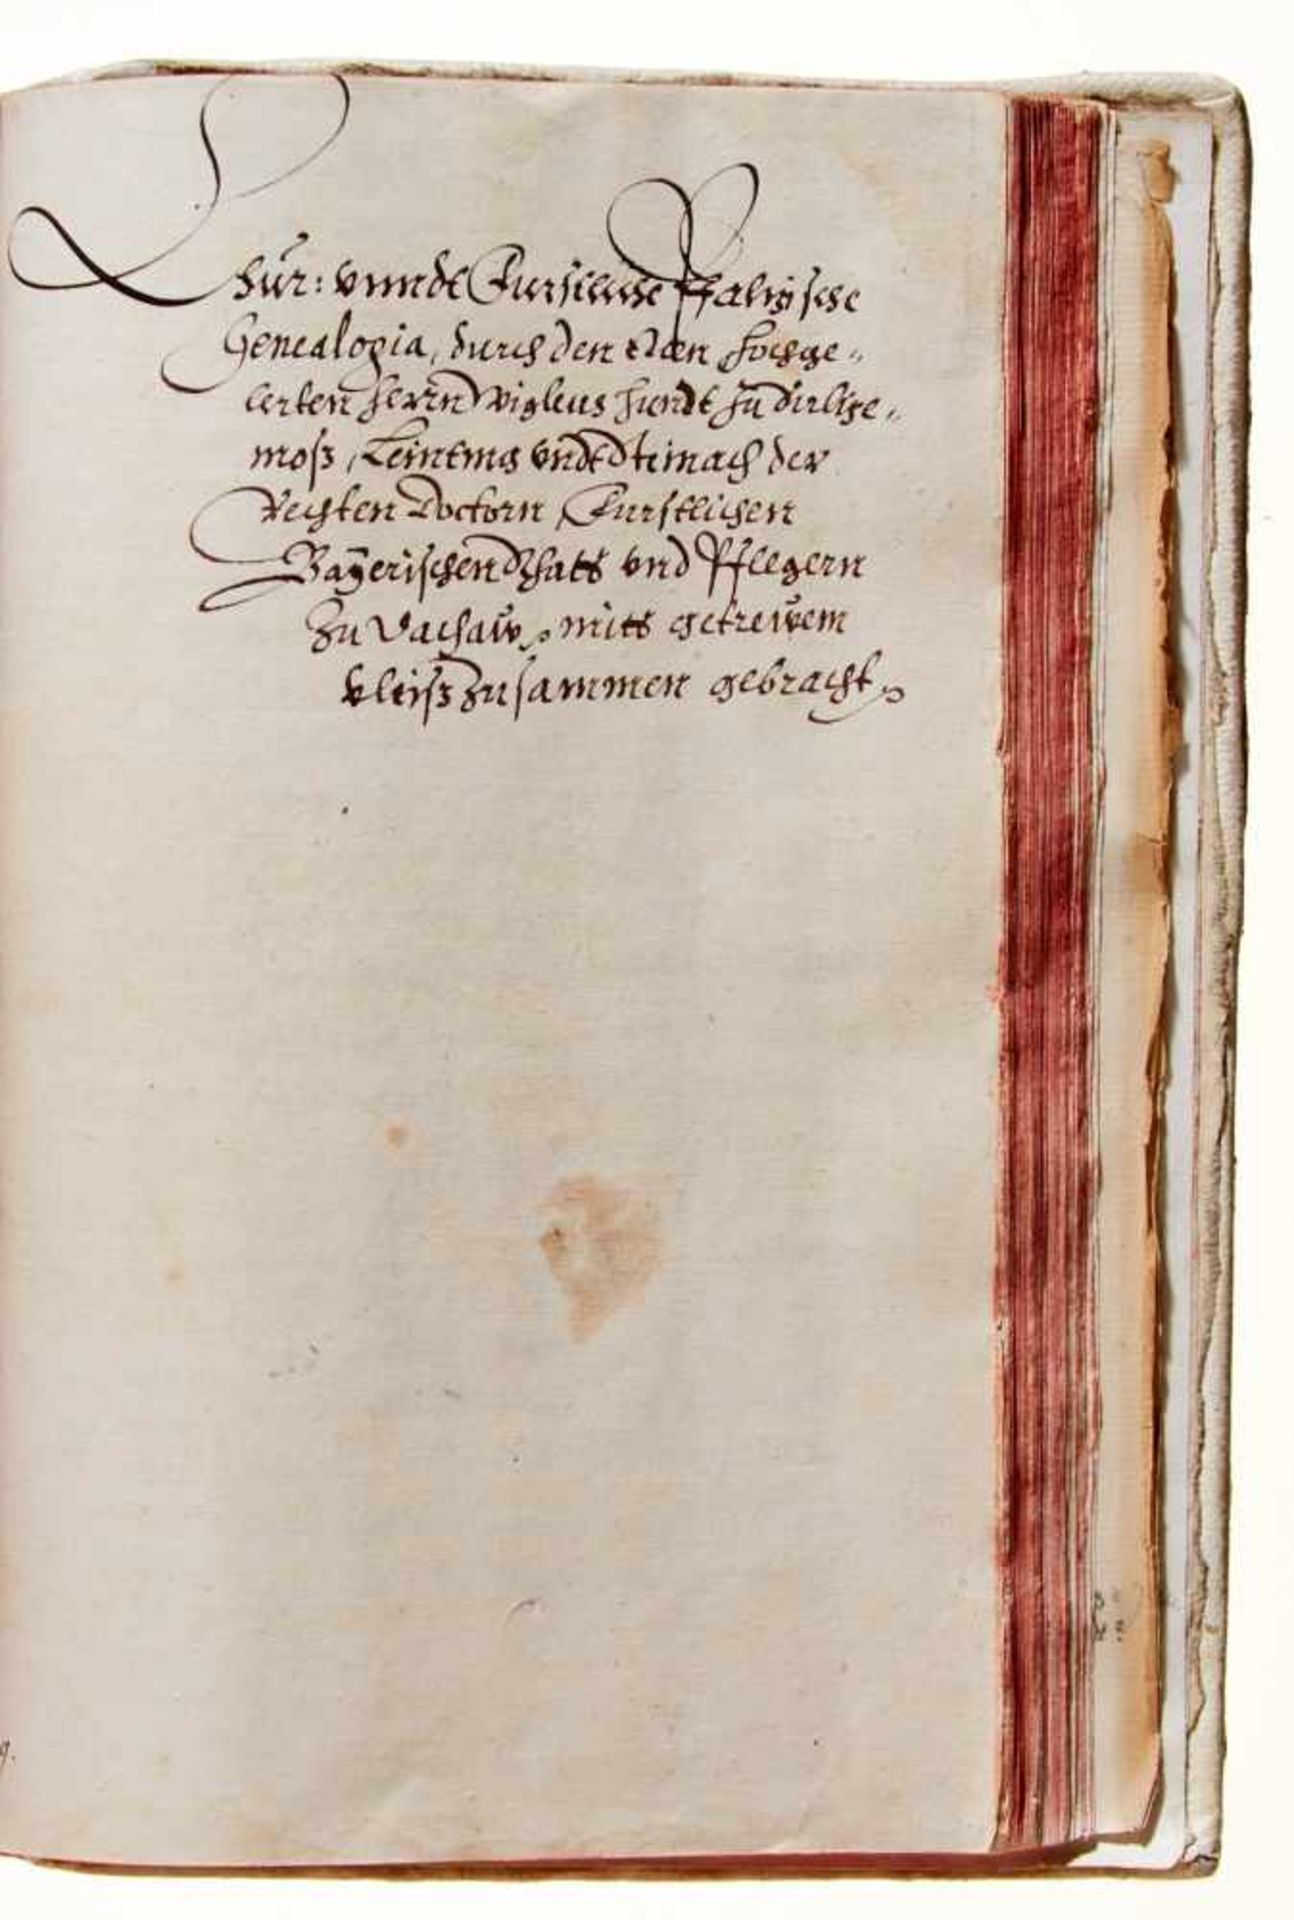 Chür: vnnde Furstliche Pfaltzische
Genealogia, durch den Edlen Hochge„
lerten Herrn Wigleus Hundt zu Sultze„
moß, Leinting vnd Steinach der
Rechten Doctorn, Furstlichen
Bayerischen Rhatts vnd Pflegern
Zu Dachaw, mitt getrewem
vleiß zusammen gebracht.